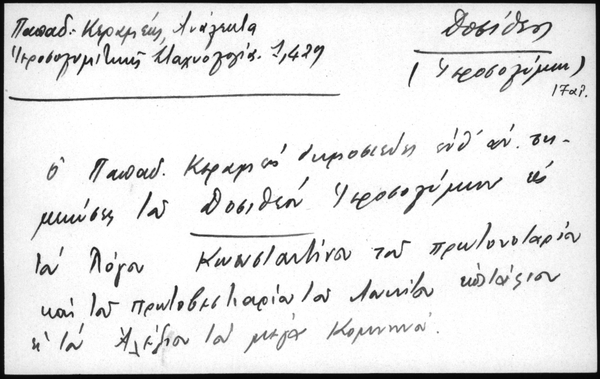 Παπαδ. Κεραμεύς, Ανάλεκτα
Ιεροσολυμιτικής Σταχυολογίας. 1,429
Δοσίθεος
(Ιεροσολύμων)
17 αι.
Ο Παπαδ. Κεραμεύς δημοσιεύει
του Δοσιθέου Ιεροσολύμων εις
τον Λόγον Κωνσταντίνου του πρωτονοταρίου
και του πρωτοβεστιαρίου του Λουκίτου επιτάφιον
εις τον Αλέξιον του μεγά Κομνηνού.